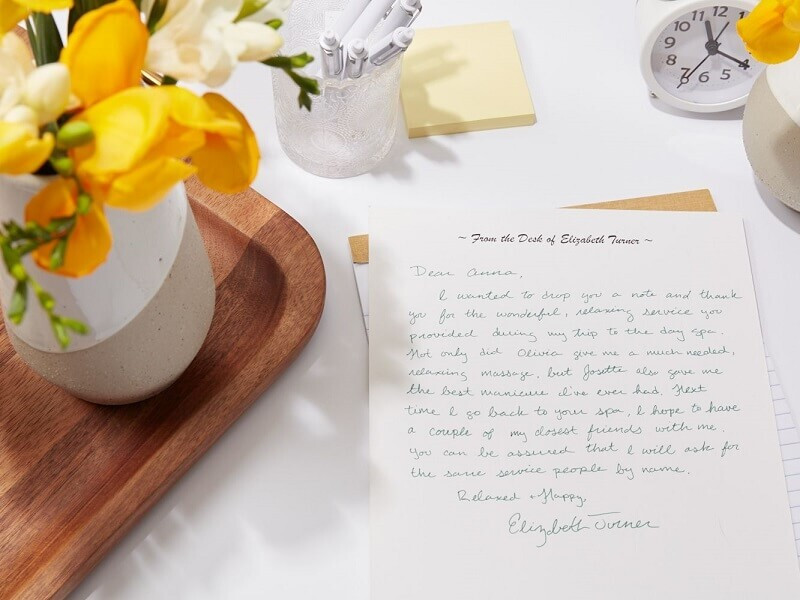 12
11
1
10
2
9
3
8
4
7
6
5
~ From the Desk of Elizabeth Turner ~
Dear Anna,
I wanted to drop you a note and thank
you for the wonderful, relaxing service you
provided during my trip to the day spa.
Not only did Olivia give me a much needed,
relaxing massage, but Josette also gave me
the best manicure I've ever had. Next
time I go back to your spa, I hope to have
a couple of my closest friends with me.
You can be assured that I will ask for
the same service people by name.
Relaxed + Happy,
Elizabeth Turner